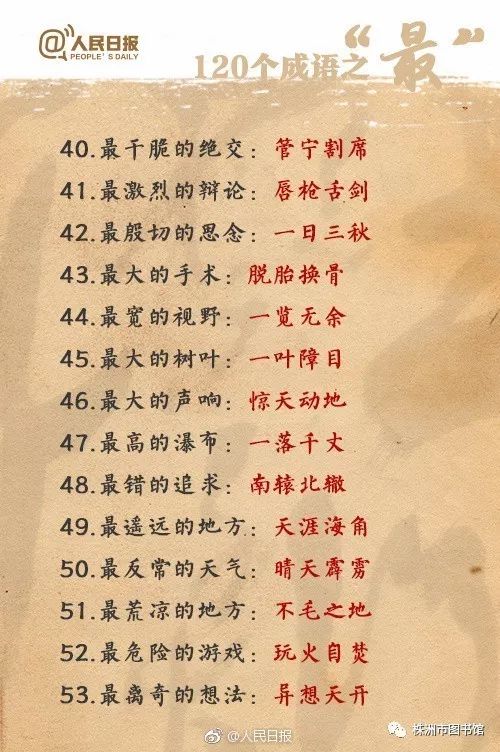 人民日报
PEOPLE'S DAILY
120个成语之“最”
40.最干脆的绝交：管宁割席
41.最激烈的辩论：唇枪舌剑
42.最殷切的思念：一日三秋
43.最大的手术：脱胎换骨
44.最宽的视野：一览无余
45.最大的树叶：一叶障目
46.最大的声响：惊天动地
47.最高的瀑布：一落千丈
48.最错的追求：南辕北辙
49.最遥远的地方：天涯海角
50.最反常的天气：晴天霹雳
51.最荒凉的地方：不毛之地
52.最危险的游戏：玩火自焚
53.最离奇的想法：异想天开
@人民日报
株洲市图书馆